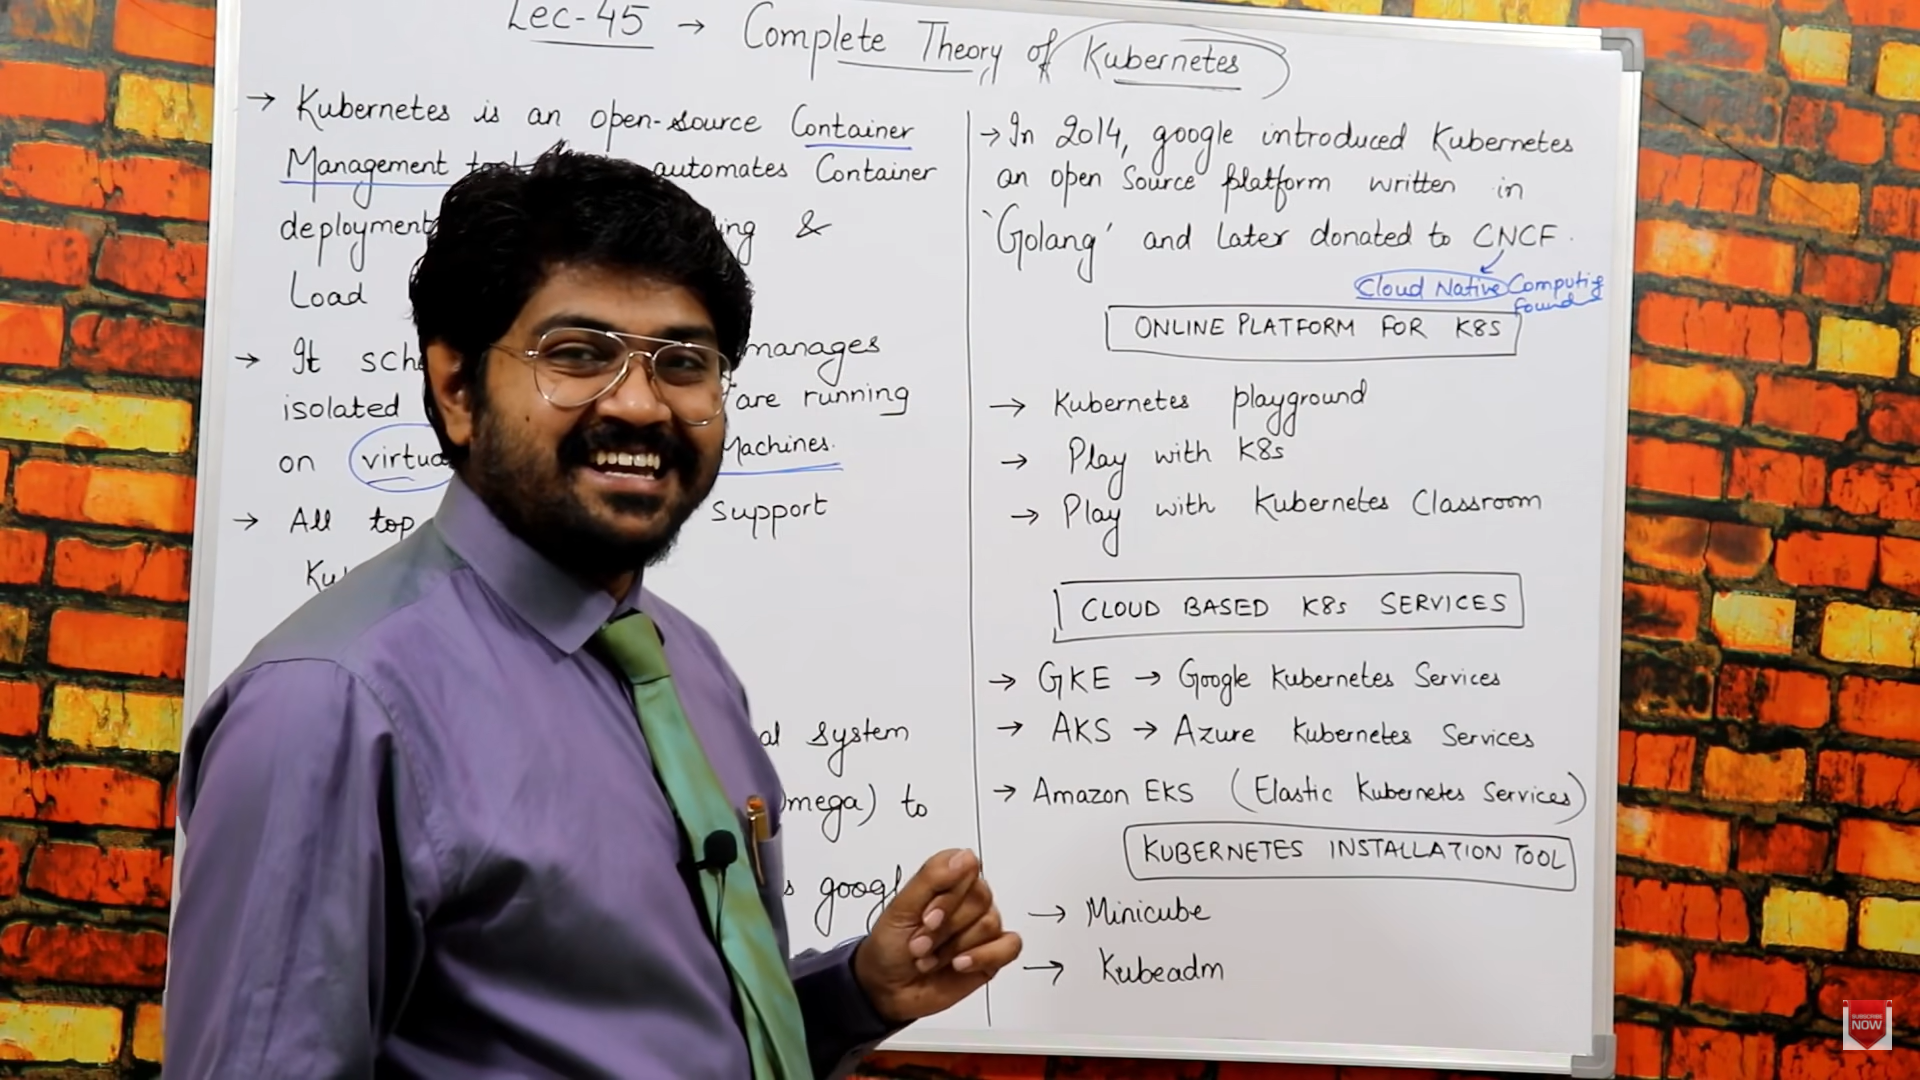 Lec-45 → Complete Theory of Kubernetes
→ Kubernetes is an open-source Container
Management automates Container
deployment &
Load
→ It manages
isolated are running
on Machines.
→ All top support
system
to
→ In 2014, google introduced Kubernetes
an open source platform written in
'Golang' and later donated to CNCF.
Cloud Native Computing
found
ONLINE PLATFORM FOR K8S
→ Kubernetes playground
→ Play with K8s
→ Play with Kubernetes Classroom
CLOUD BASED K8s SERVICES
→ GKE → Google Kubernetes Services
→ AKS → Azure Kubernetes Services
→ Amazon EKS (Elastic Kubernetes Services)
KUBERNETES INSTALLATION TOOL
→ Minicube
→ Kubeadm
SUBSCRIBE
NOW